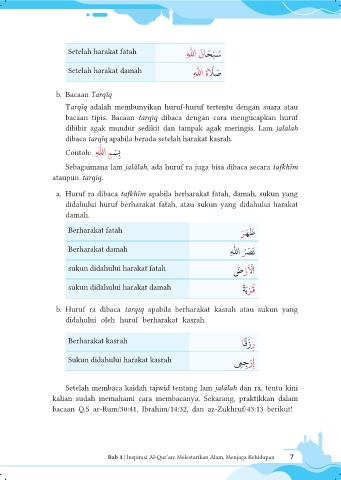 Setelah harakat fatah سُبْحَانَ اللهِ
Setelah harakat damah صَلَاةُ اللهِ
b. Bacaan Tarqīq
Tarqīq adalah membunyikan huruf-huruf tertentu dengan suara atau
bacaan tipis. Bacaan tarqīq dibaca dengan cara mengucapkan huruf
dibibir agak mundur sedikit dan tampak agak meringis. Lam jalālah
dibaca tarqīq apabila berada setelah harakat kasrah.
Contoh: بِسْمِ اللهِ
Sebagaimana lam jalālah, ada huruf ra juga bisa dibaca secara tafkhīm
ataupun tarqiq.
a. Huruf ra dibaca tafkhīm apabila berharakat fatah, damah, sukun yang
didahului huruf berharakat fatah, atau sukun yang didahului harakat
damah.
Berharakat fatah ظَهَرَ
Berharakat damah نَصْرُ اللهِ
sukun didahului harakat fatah الْاَرْضُ
sukun didahului harakat damah قُرْبَةٌ
b. Huruf ra dibaca tarqiq apabila berharakat kasrah atau sukun yang
didahului oleh huruf berharakat kasrah.
Berharakat kasrah رِزْقًا
Sukun didahului harakat kasrah اِرْجِعِى
Setelah membaca kaidah tajwid tentang lam jalālah dan ra, tentu kini
kalian sudah memahami cara membacanya. Sekarang, praktikkan dalam
bacaan Q.S ar-Rum/30:41, Ibrahim/14:32, dan az-Zukhruf/43:13 berikut!
Bab 1 | Inspirasi Al-Qur'an: Melestarikan Alam, Menjaga Kehidupan 7